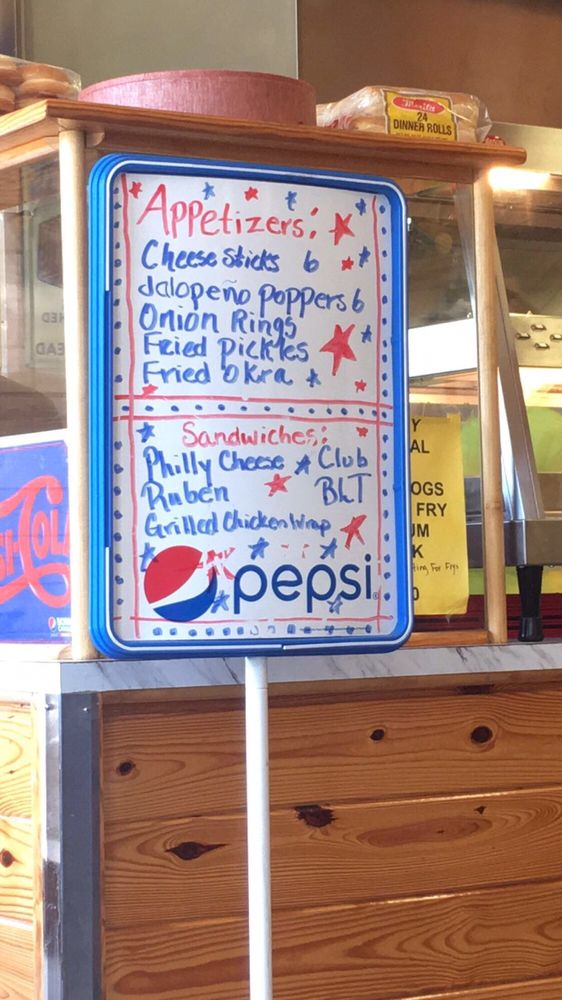 24
DINNER ROLLS
Appetizers:
Cheese Sticks 6
Jalopeño Poppers 6
Onion Rings
Fried Pickles
Fried Okra
Sandwiches:
Philly Cheese Club
Ruben BLT
Grilled Chicken Wrap
pepsi
Y
AL
OGS
FRY
UM
K
ting For Frys
0